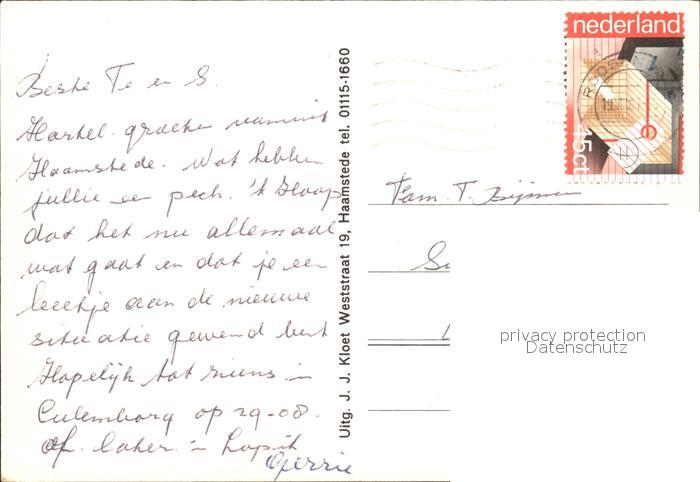 Beste Te en S.
Hartel. groeten vanuit
Haamstede. Wat hebben
jullie een pech. 't Hoop
dat het nu allemaal
wat gaat en dat je een
beetje aan de nieuwe
situatie gewend bent
Hopelijk tot ziens in
Culemborg op 29-08.
of. later in Lopik
Gerrie
Uitg. J. J. Kloet Weststraat 19, Haamstede tel. 01115-1660
nederland
45ct
Fam. T.
privacy protection
Datenschutz